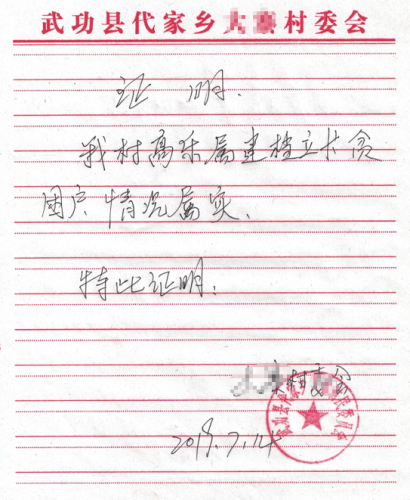 武功县代家乡村委会
证 明.
我村高乐属建档立卡贫
困户情况属实、
特此证明.
村委会
2019.7.14